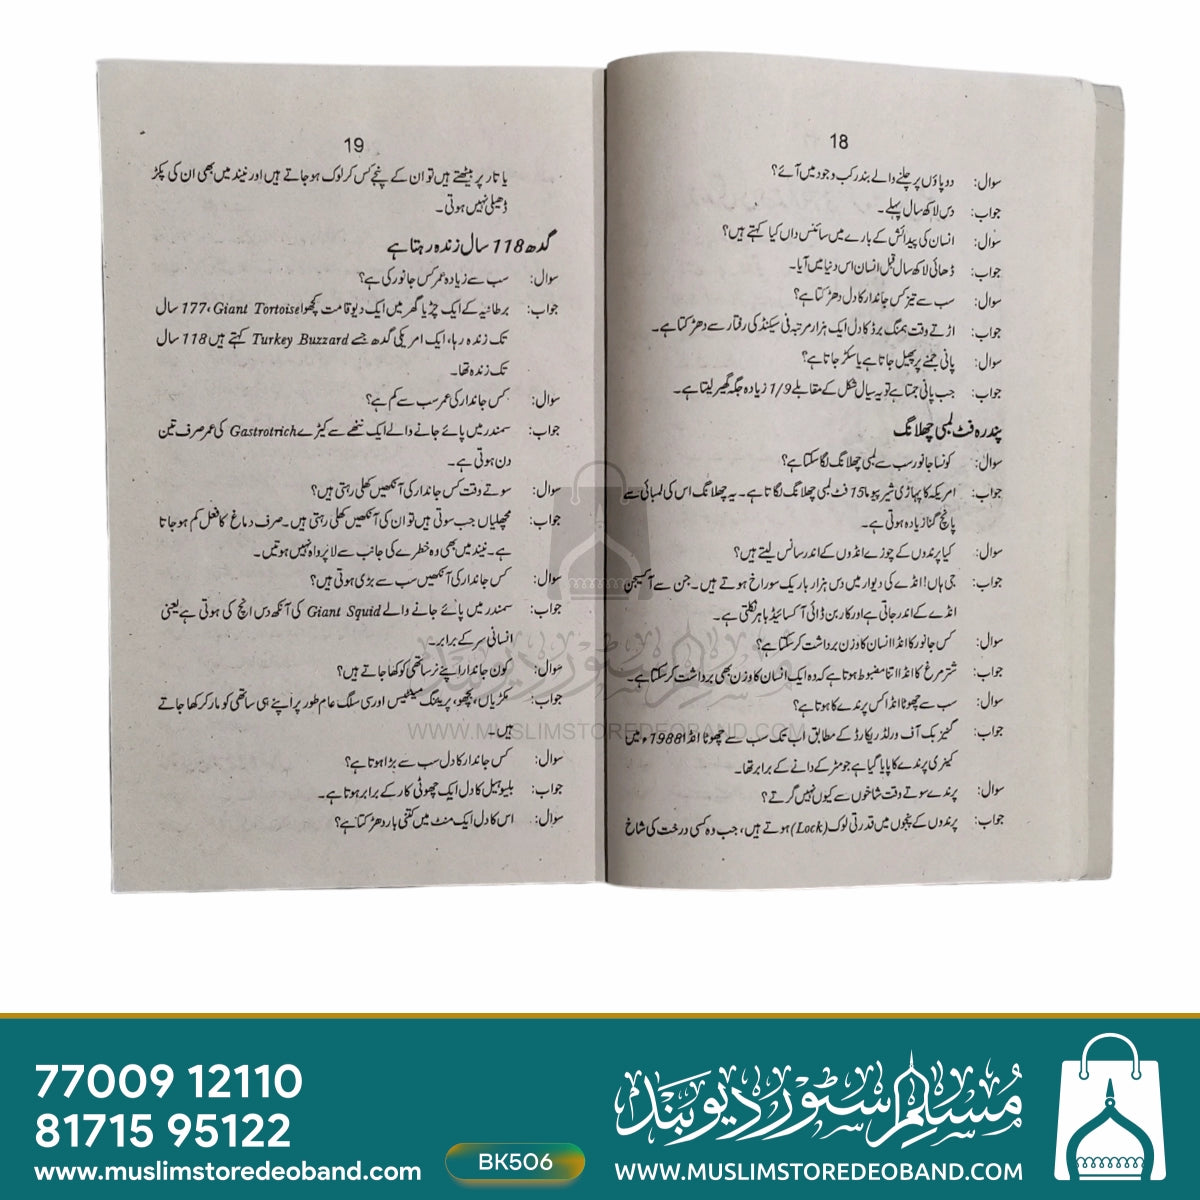 18
سوال: دو پاؤں پر چلنے والے بندر کب وجود میں آئے؟
جواب: دس لاکھ سال پہلے۔
سوال: انسان کی پیدائش کے بارے میں سائنس داں کیا کہتے ہیں؟
جواب: ڈھائی لاکھ سال قبل انسان اس دنیا میں آیا۔
سوال: سب سے تیز کس جاندار کا دل دھڑکتا ہے؟
جواب: اڑتے وقت ہمنگ برڈ کا دل ایک ہزار مرتبہ فی سیکنڈ کی رفتار سے دھڑکتا ہے۔
سوال: پانی جمنے پر پھیل جاتا ہے یا سکڑ جاتا ہے؟
جواب: جب پانی جمتا ہے تو یہ سیال شکل کے مقابلے 1/9 زیادہ جگہ گھیر لیتا ہے۔
پندرہ فٹ لمبی چھلانگ
سوال: کونسا جانور سب سے لمبی چھلانگ لگا سکتا ہے؟
جواب: امریکہ کا پہاڑی شیر پیوما 15 فٹ لمبی چھلانگ لگاتا ہے۔ یہ چھلانگ اس کی لمبائی سے
پانچ گنا زیادہ ہوتی ہے۔
سوال: کیا پرندوں کے چوزے انڈوں کے اندر سانس لیتے ہیں؟
جواب: جی ہاں! انڈے کی دیوار میں دس ہزار باریک سوراخ ہوتے ہیں۔ جن سے آکسیجن
انڈے کے اندر جاتی ہے اور کاربن ڈائی آکسائیڈ باہر نکلتی ہے۔
سوال: کس جانور کا انڈا انسان کا وزن برداشت کر سکتا ہے؟
جواب: شتر مرغ کا انڈا اتنا مضبوط ہوتا ہے کہ وہ ایک انسان کا وزن بھی برداشت کر سکتا ہے۔
سوال: سب سے چھوٹا انڈا کس پرندے کا ہوتا ہے؟
جواب: گنیز بک آف ورلڈ ریکارڈ کے مطابق اب تک سب سے چھوٹا انڈا 1988ء میں
کینری پرندے کا پایا گیا ہے جو مٹر کے دانے کے برابر تھا۔
سوال: پرندے سوتے وقت شاخوں سے کیوں نہیں گرتے؟
جواب: پرندوں کے پنجوں میں قدرتی لوک (Lock) ہوتے ہیں، جب وہ کسی درخت کی شاخ
19
یا تار پر بیٹھتے ہیں تو ان کے پنجے کس کر لوک ہو جاتے ہیں اور نیند میں بھی ان کی پکڑ
ڈھیلی نہیں ہوتی۔
گدھ 118 سال زندہ رہتا ہے
سوال: سب سے زیادہ عمر کس جانور کی ہے؟
جواب: برطانیہ کے ایک چڑیا گھر میں ایک دیو قامت کچھوا Giant Tortoise، 177 سال
تک زندہ رہا، ایک امریکی گدھ جسے Turkey Buzzard کہتے ہیں 118 سال
تک زندہ تھا۔
سوال: کس جاندار کی عمر سب سے کم ہے؟
جواب: سمندر میں پائے جانے والے ایک ننھے سے کیڑے Gastrotrich کی عمر صرف تین
دن ہوتی ہے۔
سوال: سوتے وقت کس جاندار کی آنکھیں کھلی رہتی ہیں؟
جواب: مچھلیاں جب سوتی ہیں تو ان کی آنکھیں کھلی رہتی ہیں۔ صرف دماغ کا فعل کم ہو جاتا
ہے۔ نیند میں بھی وہ خطرے کی جانب سے لاپرواہ نہیں ہوتیں۔
سوال: کس جاندار کی آنکھیں سب سے بڑی ہوتی ہیں؟
جواب: سمندر میں پائے جانے والے Giant Squid کی آنکھ دس انچ کی ہوتی ہے یعنی
انسانی سر کے برابر۔
سوال: کون جاندار اپنے نر ساتھی کو کھا جاتے ہیں؟
جواب: مکڑیاں، بچھو، پریئنگ مینٹیس اور سی سلگ عام طور پر اپنے ہی ساتھی کو مار کر کھا جاتے
ہیں۔
سوال: کس جاندار کا دل سب سے بڑا ہوتا ہے؟
جواب: بلیو وہیل کا دل ایک چھوٹی کار کے برابر ہوتا ہے۔
سوال: اس کا دل ایک منٹ میں کتنی بار دھڑکتا ہے؟
مسلم سٹور دیوبند
WWW.MUSLIMSTOREDEOBAND.COM
77009 12110
81715 95122
www.muslimstoredeoband.com
BK506
مسلم سٹور دیوبند
WWW.MUSLIMSTOREDEOBAND.COM